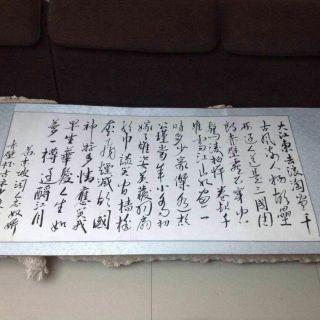 大江東去浪淘尽千
古風流人物故壘
西邊人道是三國周
郎赤壁乱石穿空
驚濤拍岸卷起千
堆雪江山如畫一
時多少豪傑遙想
公瑾當年小喬初
嫁了雄姿英發羽扇
綸巾談笑間檣櫓
灰飛煙滅故國
神游多情應笑我
早生華髮人生如
夢一樽還酹江月
蘇東坡詞念奴嬌
赤壁懷古